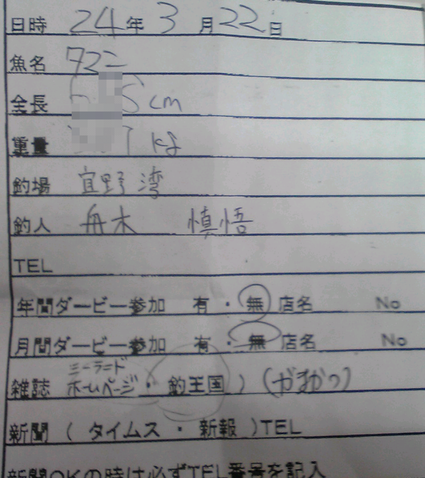 日時 24年3月22日
魚名 タマン
全長 cm
重量 kg
釣場 宜野湾
釣人 舟木 慎悟
TEL
年間ダービー参加 有・無 店名 No
月間ダービー参加 有・無 店名 No
雑誌 ミーランド ホームページ・釣王国)(がまかつ)
新聞(タイムス・新報)TEL
新聞OKの時は必ずTEL番号を記入